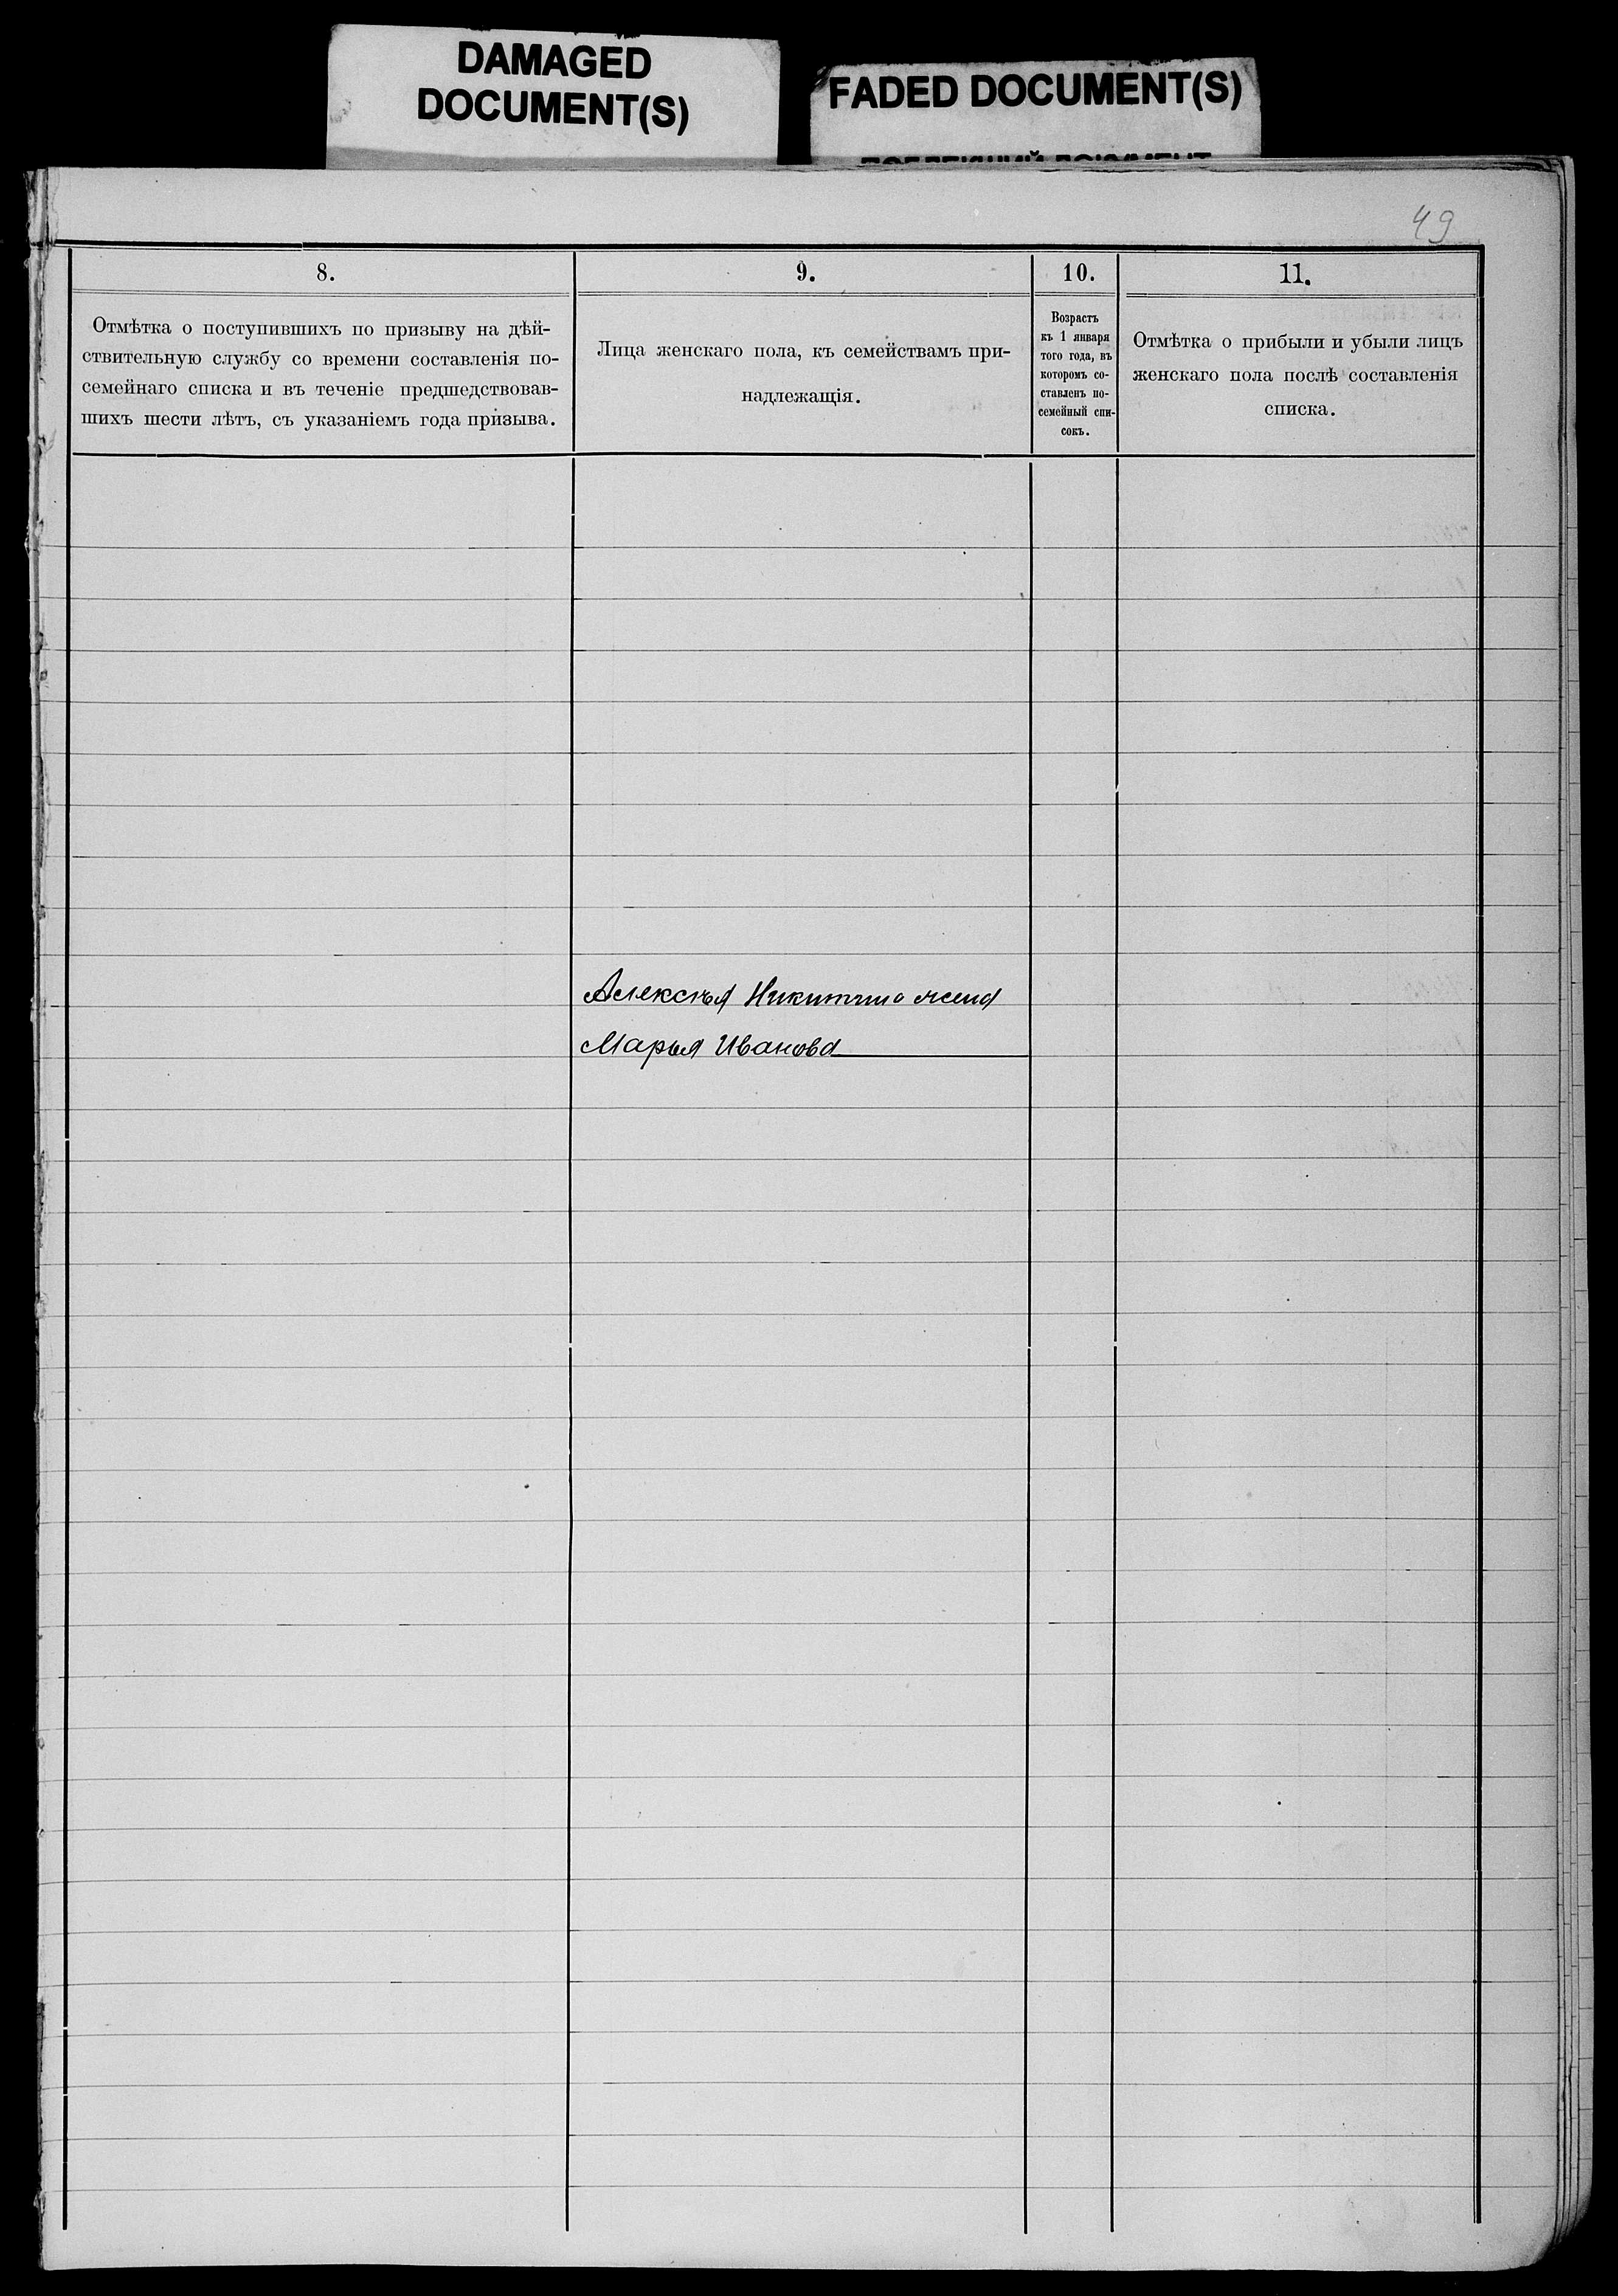 DAMAGED
DOCUMENT(S)
FADED DOCUMENT(S)
49
8.
Отмѣтка о поступившихъ по призыву на дѣй-
ствительную службу со времени составленія по-
семейнаго списка и въ теченіе предшедствовав-
шихъ шести лѣтъ, съ указаніемъ года призыва.
9.
Лица женскаго пола, къ семействамъ при-
надлежащія.
10.
Возрастъ
къ 1 января
того года, въ
которомъ со-
ставленъ по-
семейный спи-
сокъ.
11.
Отмѣтка о прибыли и убыли лицъ
женскаго пола послѣ составленія
списка.
Алексѣя Никитина жена
Марья Иванова